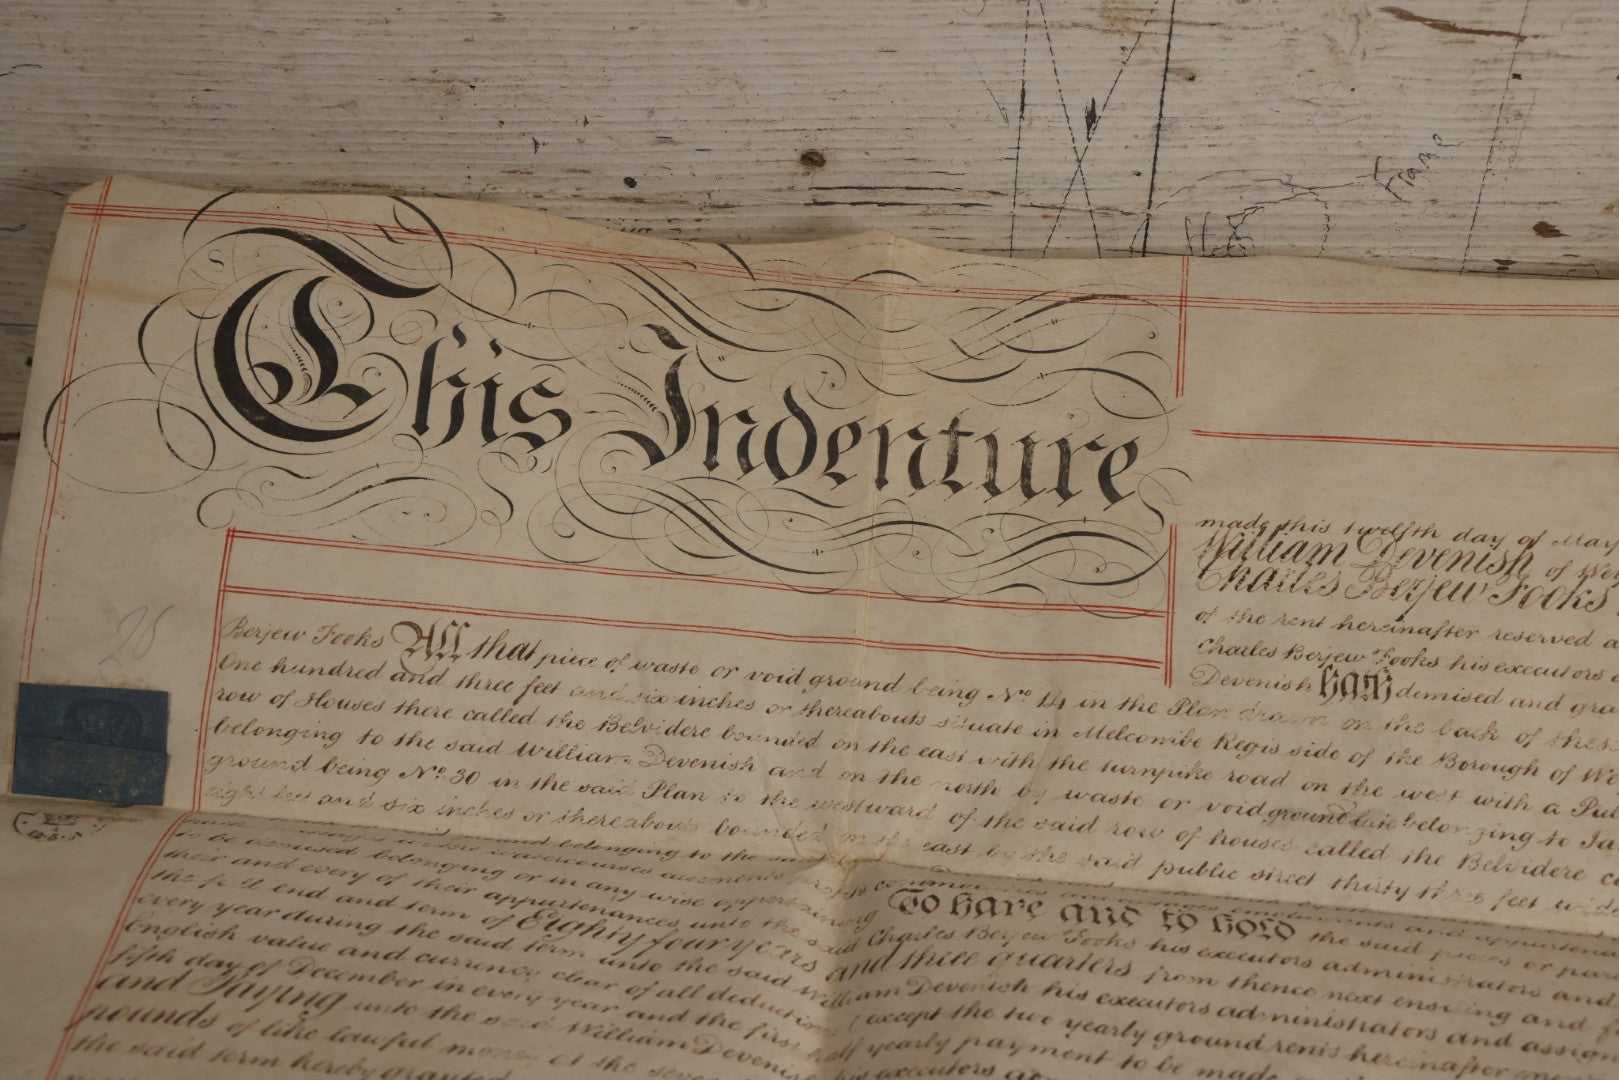 Frame
This Indenture
made this twelfth day of May
William Devenish of
Charles Berjew Fooks
of the rent hereinafter reserved
Charles Berjew Fooks his executors
Devenish hath demised and
Berjew Fooks All that piece of waste or void ground being No. 14 in the Plan drawn on the back of these
One hundred and three feet and six inches or thereabouts situate in Melcombe Regis side of the Borough of
row of Houses there called the Belvidere bounded on the east with the turnpike road on the west with a
belonging to the said William Devenish and on the north by waste or void ground late belonging to
ground being No. 30 in the said Plan to the westward of the said row of houses called the Belvidere
eight feet and six inches or thereabouts bounded on the east by the said public street thirty three feet
belonging to the said
to be demised belonging or in any wise appertaining To have and to hold the said pieces or
their and every of their appurtenances unto the said Charles Berjew Fooks his executors administrators and
the full end and term of Eighty four years and three quarters from thence next ensuing and
every year during the said term unto the said William Devenish his executors administrators and
English value and currency clear of all deductions (except the two yearly ground rents hereinafter
fifth day of December in every year and the first half yearly payment to be made
and Paying unto the said William Devenish his executors
pounds of like lawful money at the
the said term hereby granted
28